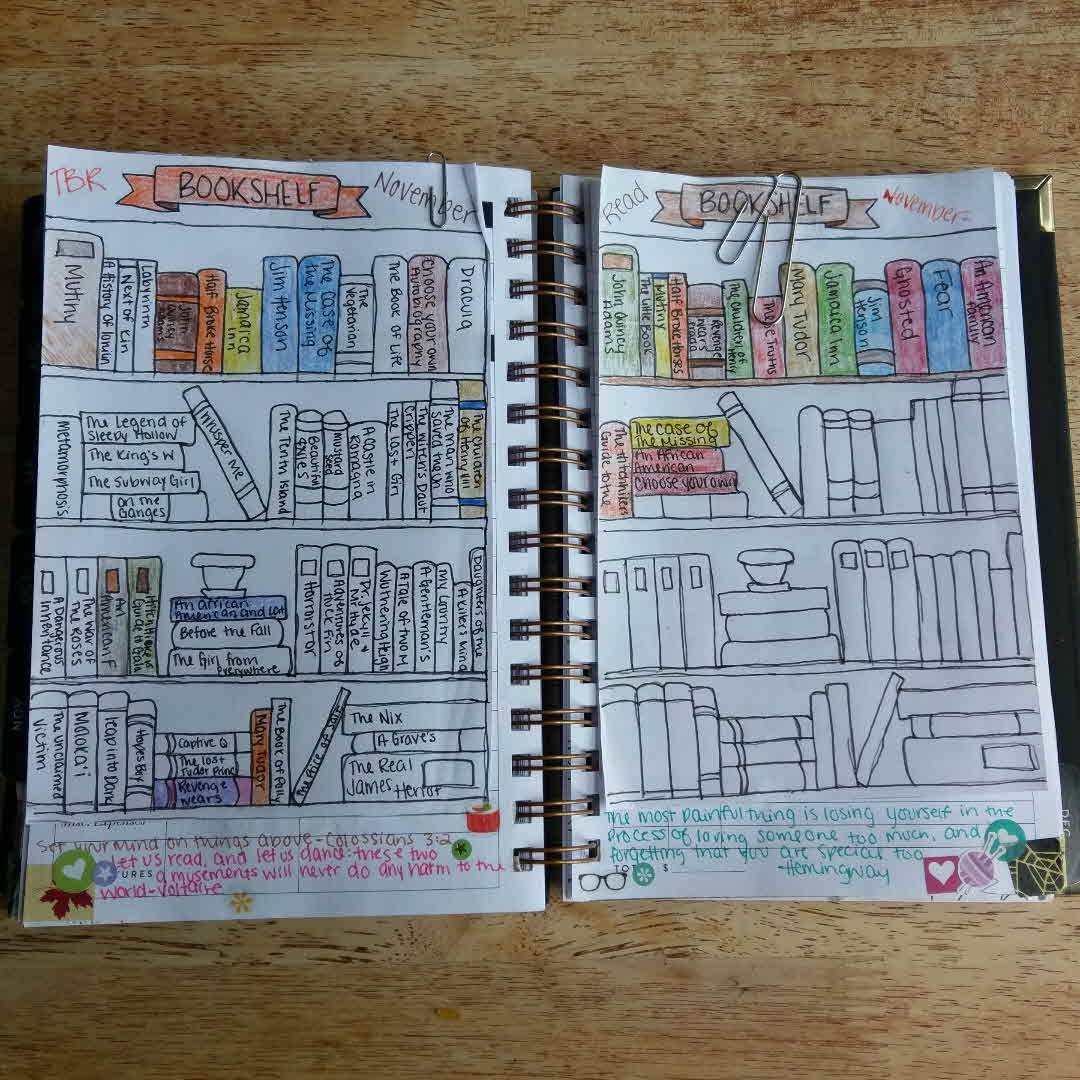 TBR
BOOKSHELF
November
Mutiny
A History of
Next of Kin
Labyrinth
John
Quincy
Adams
Half Broke Horses
Jamaica
Inn
Jim Henson
The Case of
The Missing
The
Vegetarian
The Book of Life
Choose your own
Autobiography
Dracula
Metamorphosis
The Legend of
Sleepy Hollow
The King's W
The Subway Girl
On the
Ganges
Whisper Me
The Tenth Island
Beautiful
Exiles
Mustard
Seed
A Castle in
Romagna
The Last Girl
Crippen
The Witch's Daut
The man who
Saved the Un
The Children
of Henry VIII
A Dangerous
Inheritance
The War of
The Roses
An
American F
Guide to
An African
American and Lat
Before the Fall
The Girl from
Everywhere
Harmistor
Adventures of
Huck Fin
Dr. Jekyll +
Mr. Hyde
Wuthering Heigh
A Tale of Two M
A Gentleman's
My Country
A Killer's Mind
Daughters of the
Victim
The Unclaimed
Moloka'i
Leap into Dark
Hope's Boy
Captive Q
The Lost
Tudor Princ
Revenge
Wears
Mary Tudor
The Book of Polly
The Price of
The Nix
A Grave's
The Real
James Herriot
Misc. Expenses
Set your mind on things above - Colossians 3:2
Let us read, and let us dance - these two
URES
amusements will never do any harm to the
world - Voltaire
Read
BOOKSHELF
November
John Quincy
Adams
The Little Book
Mutiny
Half Broke Horses
Revenge
Wears
The Children
of Henry
Truths
Mary Tudor
Jamaica Inn
Jim
Henson
Ghosted
Fear
An American
Family
The Hitchhikers
Guide to the
The Case of
The Missing
An African
American
Choose your own
The most painful thing is losing yourself in the
process of loving someone too much, and
forgetting that you are special too
-Hemingway
$
DEC